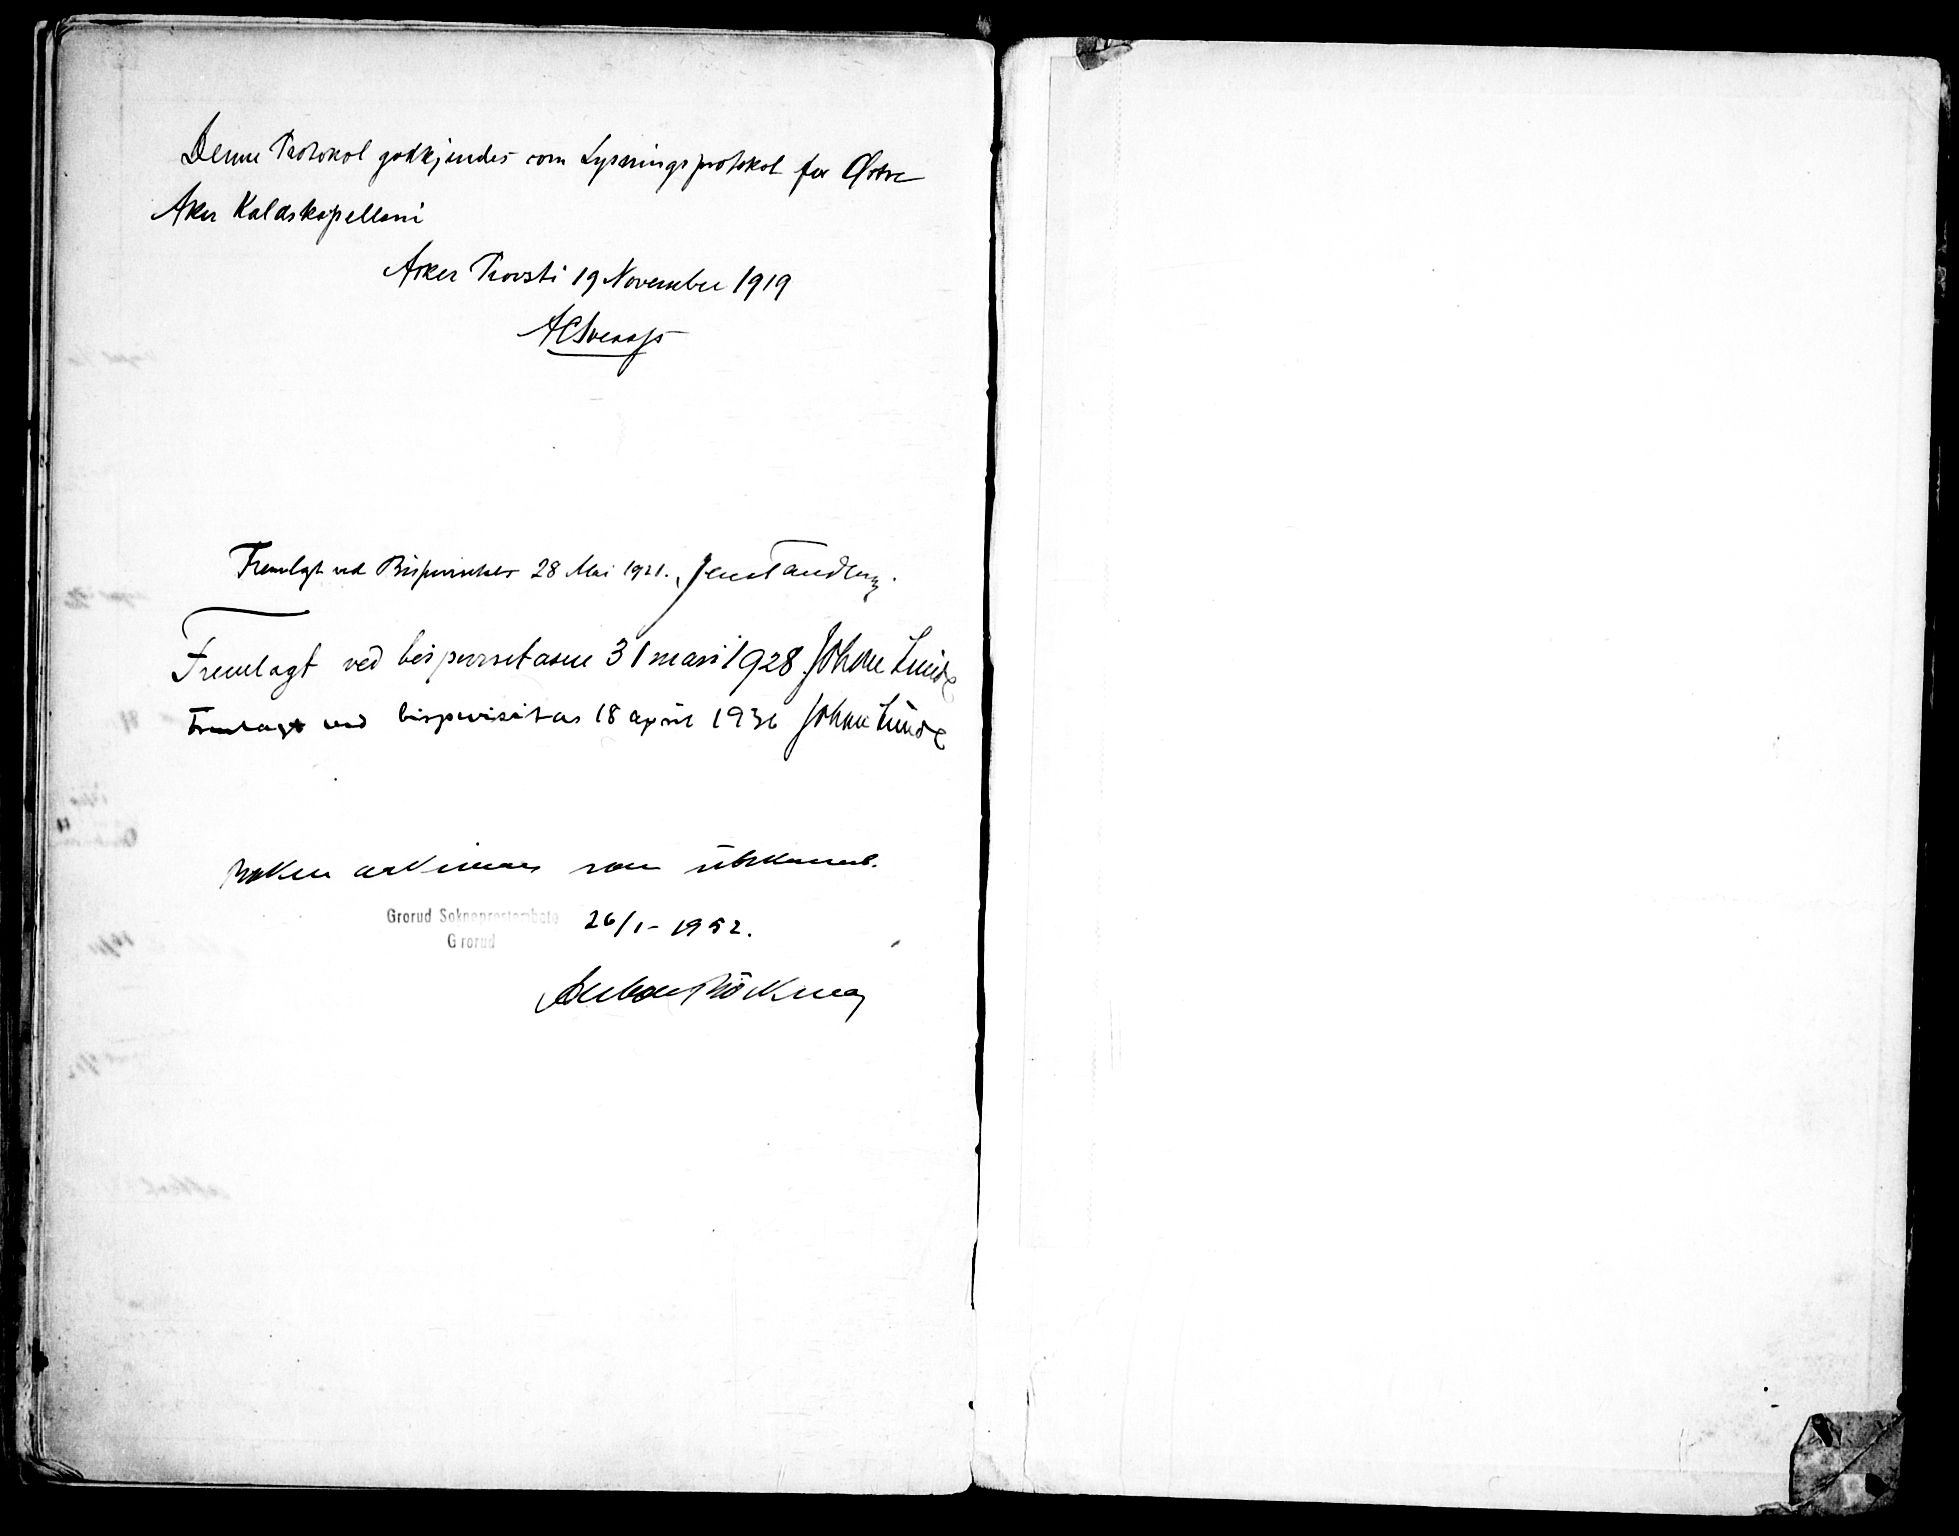 Denne Protokol godkjendes som Lysningsprotokol for Østre
Aker Kaldskapellani
Aker Provsti 19 November 1919
Fremlagt ved Bispevisitas 28 Mai 1921. Jens Tandberg.
Fremlagt ved bispevisitasen 31 mars 1928 Johan Lunde
Fremlagt ved bispevisitas 18 april 1936 Johan Lunde
Boken arkiveres som utskrevet.
Grorud Sokneprestembete 26/1-1952.
Grorud